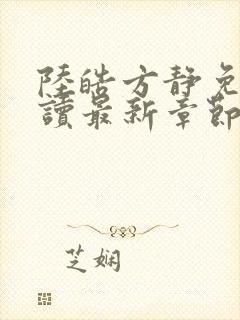 陸皓方靜免
讀最新章節
芝嫻